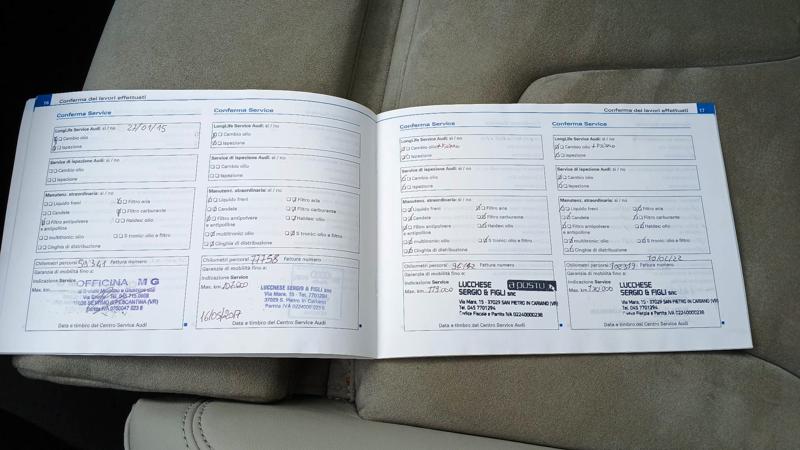 16 Conferma dei lavori effettuati
Conferma Service
LongLife Service Audi: sì / no 27/01/15
Cambio olio
Ispezione
Service di ispezione Audi: sì / no
Cambio olio
Ispezione
Manutenz. straordinaria: sì / no
Liquido freni Filtro aria
Candele Filtro carburante
Filtro antipolvere e antipolline Haldex: olio
multitronic: olio S tronic: olio e filtro
Cinghia di distribuzione
Chilometri percorsi Fattura numero
Garanzia di mobilità fino a:
Indicazione Service
Max. km
OFFICINA M G
Data e timbro del Centro Service Audi
Conferma Service
LongLife Service Audi: sì / no
Cambio olio
Ispezione
Service di ispezione Audi: sì / no
Cambio olio
Ispezione
Manutenz. straordinaria: sì / no
Liquido freni Filtro aria
Candele Filtro carburante
Filtro antipolvere e antipolline Haldex: olio
multitronic: olio S tronic: olio e filtro
Cinghia di distribuzione
Chilometri percorsi 77758 Fattura numero
Garanzia di mobilità fino a:
Indicazione Service
Max. km
LUCCHESE
SERGIO & FIGLI snc
Via Mara, 15 - Tel. 7701294
37029 S. Pietro in Cariano
Partita IVA 02240000238
16/05/2017
Data e timbro del Centro Service Audi
Conferma dei lavori effettuati 17
Conferma Service
LongLife Service Audi: sì / no
Cambio olio
Ispezione
Service di ispezione Audi: sì / no
Cambio olio
Ispezione
Manutenz. straordinaria: sì / no
Liquido freni Filtro aria
Candele Filtro carburante
Filtro antipolvere e antipolline Haldex: olio
multitronic: olio S tronic: olio e filtro
Cinghia di distribuzione
Chilometri percorsi Fattura numero
Garanzia di mobilità fino a:
Indicazione Service
Max. km
LUCCHESE a posto
SERGIO & FIGLI snc
Via Mara, 15 - 37029 SAN PIETRO IN CARIANO (VR)
Tel. 045 7701294
Codice Fiscale e Partita IVA 02240000238
Data e timbro del Centro Service Audi
Conferma Service
LongLife Service Audi: sì / no
Cambio olio
Ispezione
Service di ispezione Audi: sì / no
Cambio olio
Ispezione
Manutenz. straordinaria: sì / no
Liquido freni Filtro aria
Candele Filtro carburante
Filtro antipolvere e antipolline Haldex: olio
multitronic: olio S tronic: olio e filtro
Cinghia di distribuzione
Chilometri percorsi Fattura numero
Garanzia di mobilità fino a:
Indicazione Service
Max. km
LUCCHESE
SERGIO & FIGLI snc
Via Mara, 15 - 37029 SAN PIETRO IN CARIANO (VR)
Tel. 045 7701294
Codice Fiscale e Partita IVA 02240000238
Data e timbro del Centro Service Audi